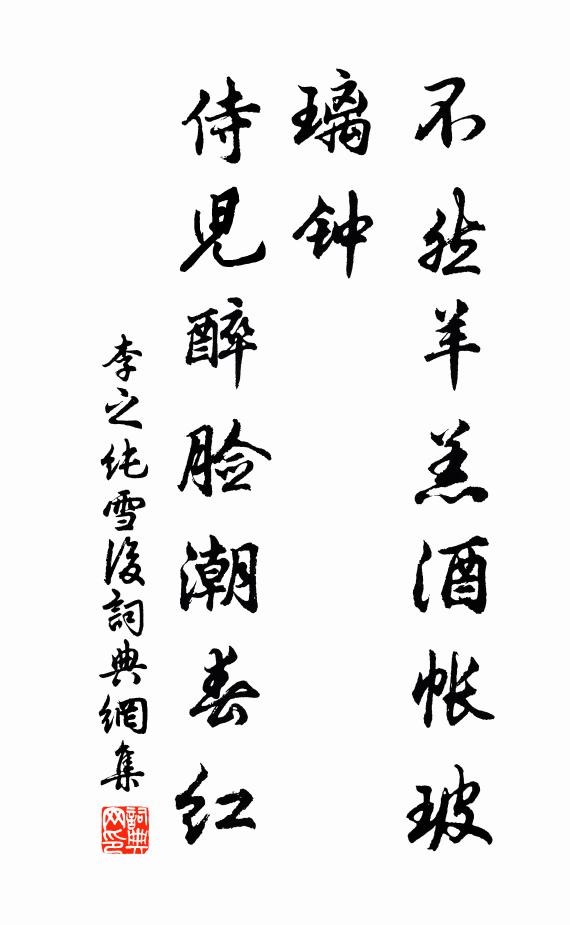 不然羊羔酒帐玻
璃钟
侍児醉脸潮春红
李之纯雪後詞典網集
詞典
网印